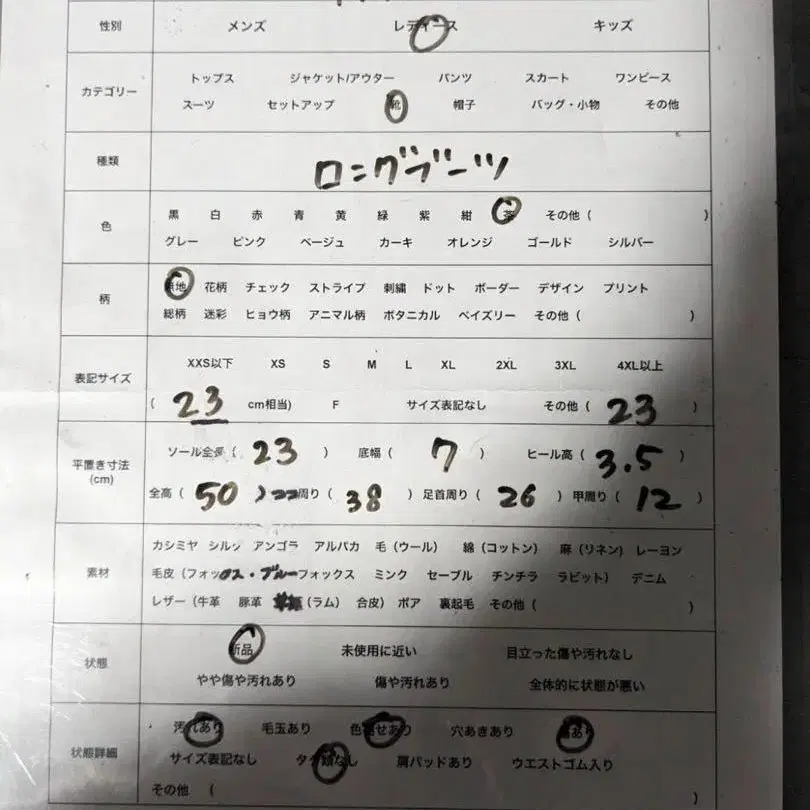 性別 メンズ レディース キッズ
カテゴリー
トップス ジャケット/アウター パンツ スカート ワンピース
スーツ セットアップ 靴 帽子 バッグ・小物 その他
種類 ロングブーツ
色
黒 白 赤 青 黄 緑 紫 紺 茶 その他 ( )
グレー ピンク ベージュ カーキ オレンジ ゴールド シルバー
柄
無地 花柄 チェック ストライプ 刺繍 ドット ボーダー デザイン プリント
総柄 迷彩 ヒョウ柄 アニマル柄 ボタニカル ペイズリー その他 ( )
表記サイズ
XXS以下 XS S M L XL 2XL 3XL 4XL以上
( 23 cm相当) F サイズ表記なし その他 ( 23 )
平置き寸法
(cm)
ソール全長 ( 23 ) 底幅 ( 7 ) ヒール高 ( 3.5 )
全高 ( 50 ) 周り ( 38 ) 足首周り ( 26 ) 甲周り ( 12 )
素材
カシミヤ シルク アンゴラ アルパカ 毛 (ウール) 綿 (コットン) 麻 (リネン) レーヨン
毛皮 (フォックス・ブルーフォックス ミンク セーブル チンチラ ラビット) デニム
レザー (牛革 豚革 (ラム) 合皮) ボア 裏起毛 その他 ( )
状態
新品 未使用に近い 目立った傷や汚れなし
やや傷や汚れあり 傷や汚れあり 全体的に状態が悪い
状態詳細
汚れあり 毛玉あり 色褪せあり 穴あきあり 傷あり
サイズ表記なし タグ類なし 肩パッドあり ウエストゴム入り
その他 ( )